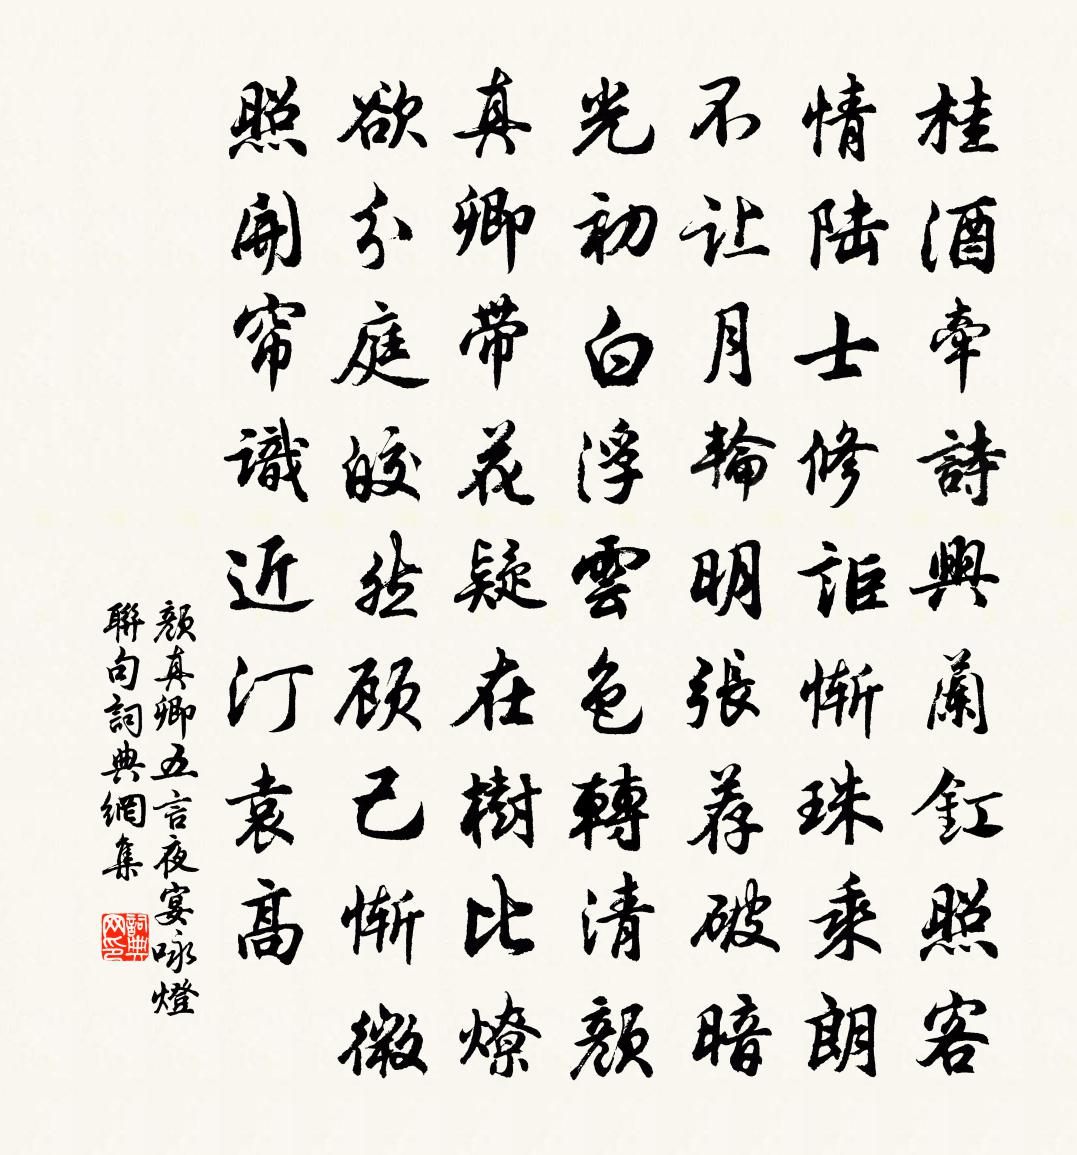 桂酒牽詩興蘭釭照客
情陆士修詎慚珠乘朗
不让月輪明張荐破暗
光初白浮雲色轉清顏
真卿帶花疑在樹比燎
欲分庭皎然顾己慚微
照開帘識近汀袁高
顏真卿五言夜宴咏燈
聯句詞典網集
詞典
网印